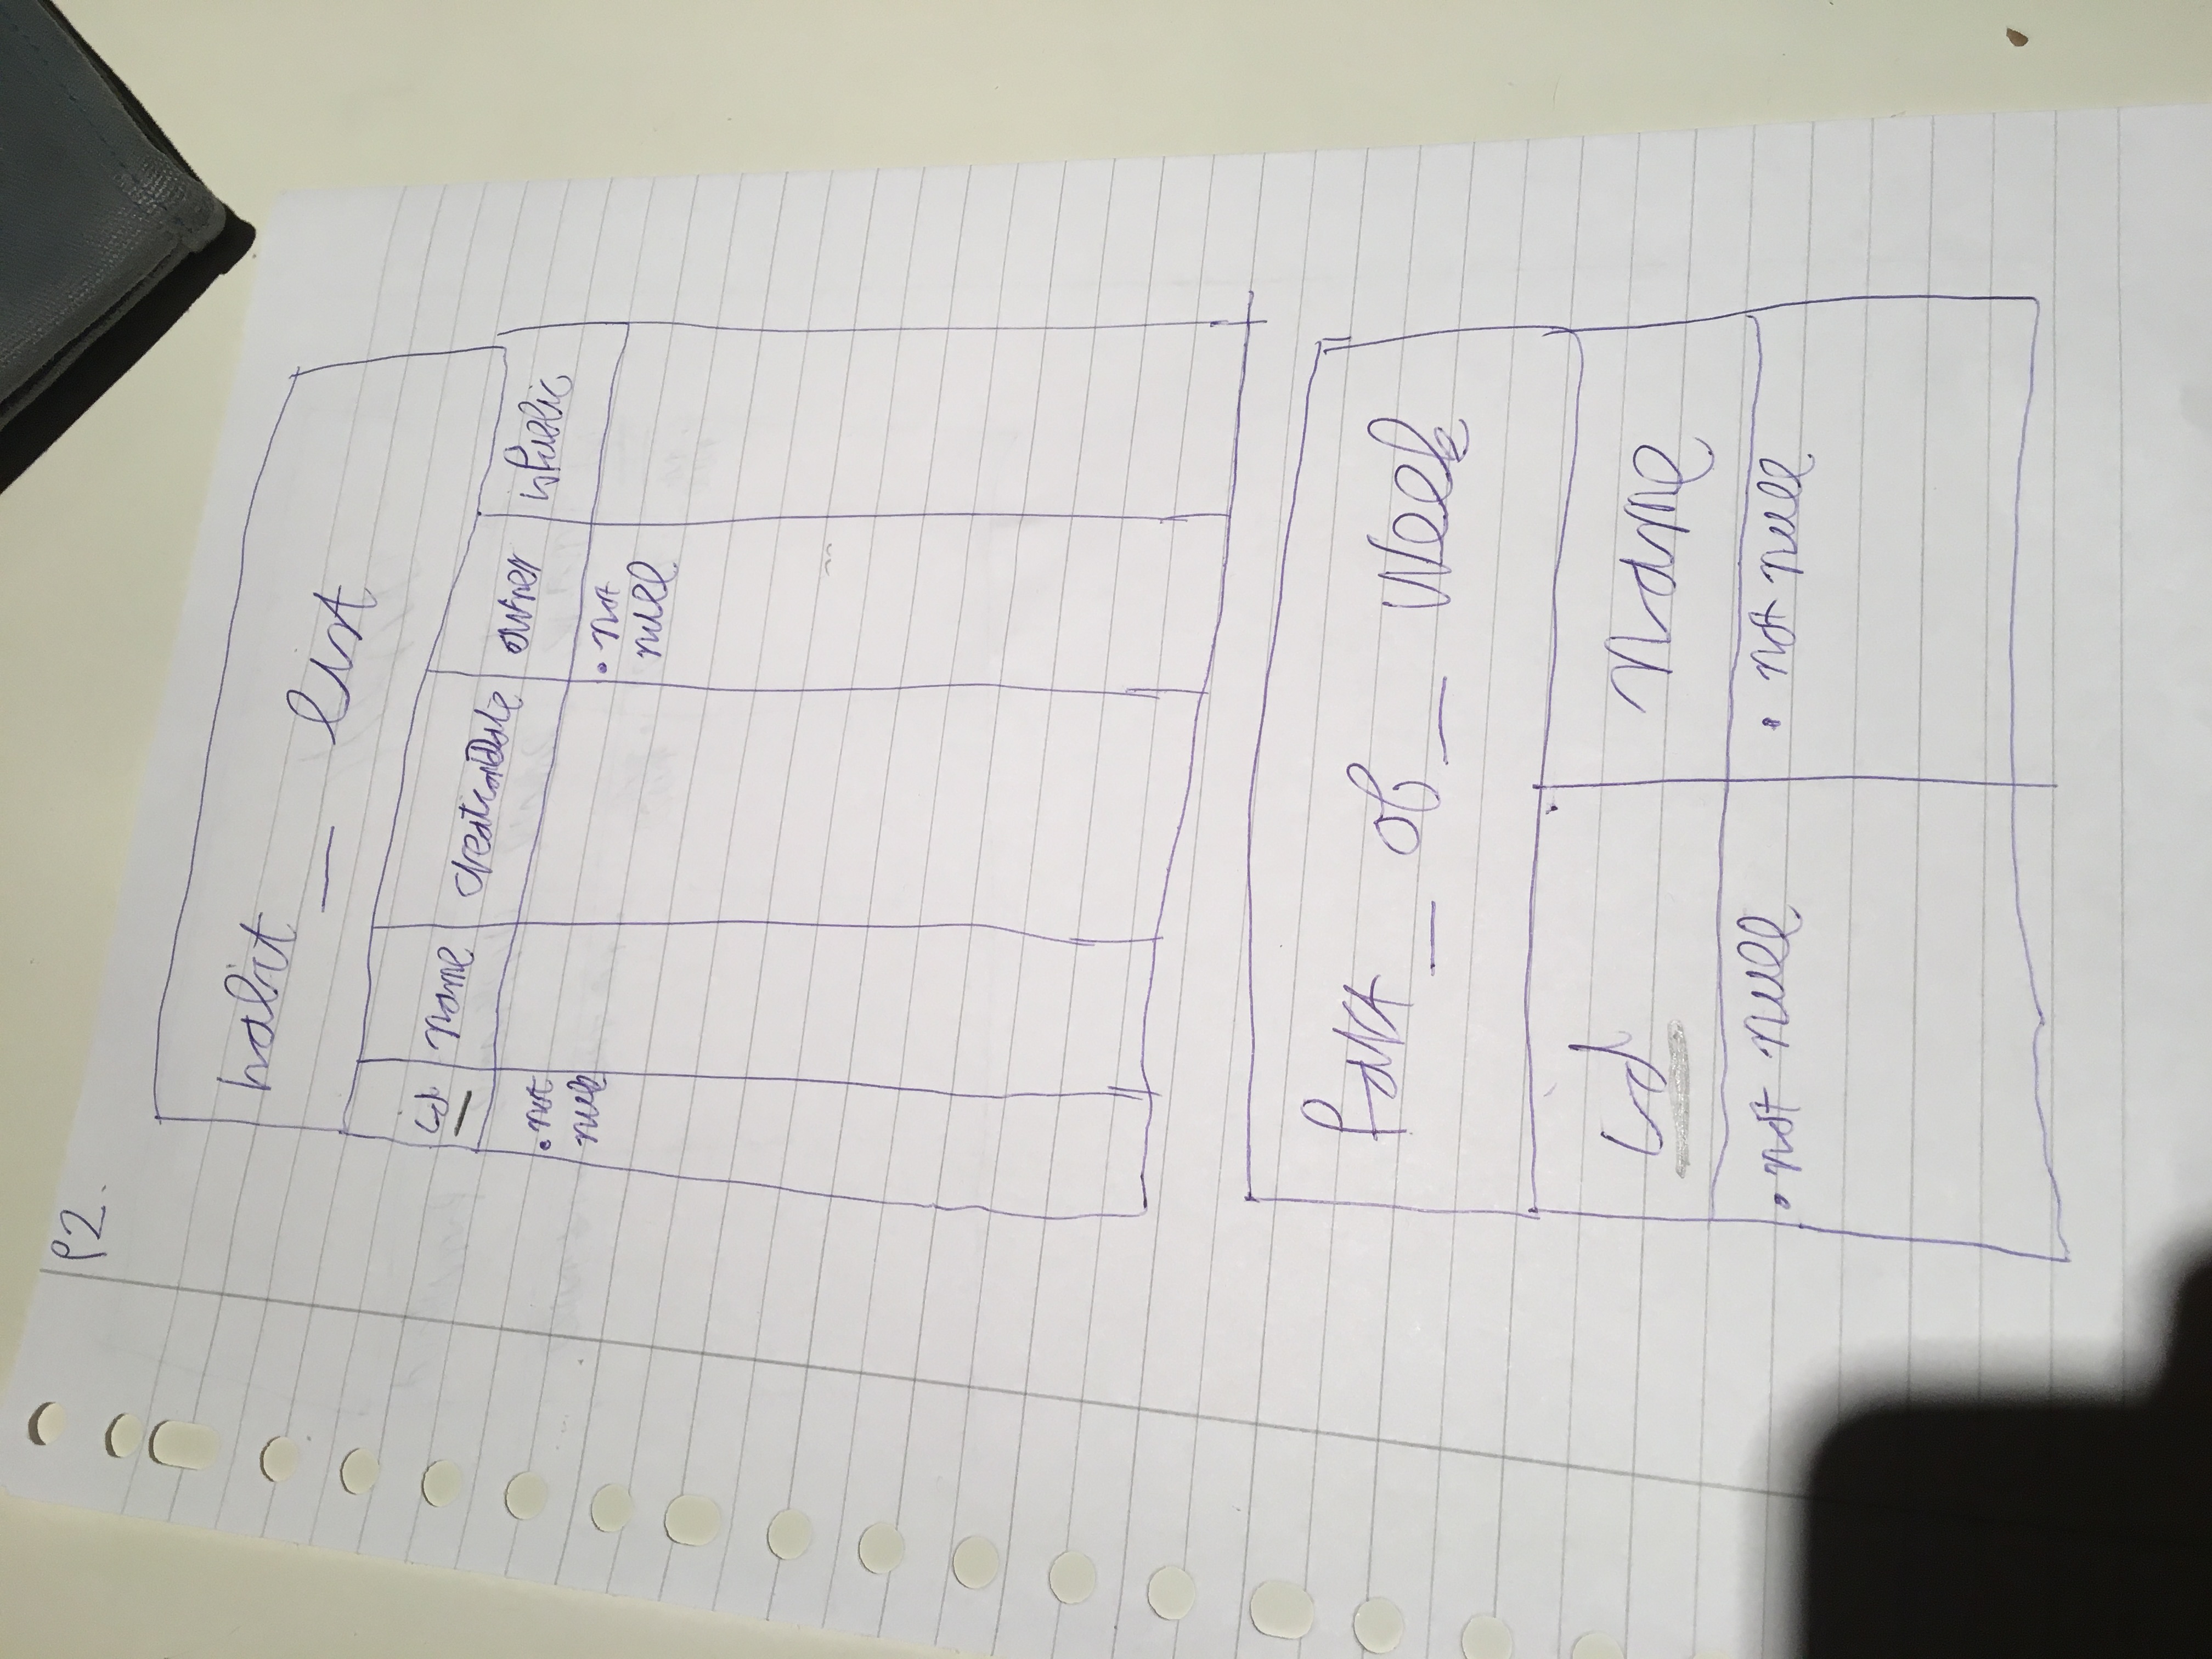 P2.
habit _ list
id name creationDate owner isPublic
• not
null
• not
null
Part _ of _ Week
id name
• not null • not null